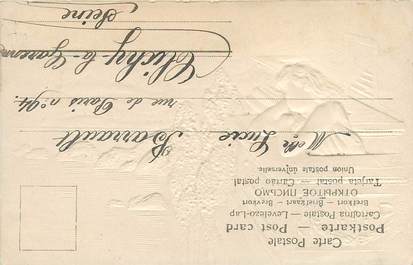 Carte Postale
Postkarte — Post card
Cartolina Postale — Levelezö-Lap
Bretkort — Briefkaart — Brevkort
ОТКРЫТОЕ ПИСЬМО
Tarjeta postal — Cartão postal
Union postale universelle
Melle Lucie Barault
rue de Paris nº 94.
Clichy-la-Garenne
Seine